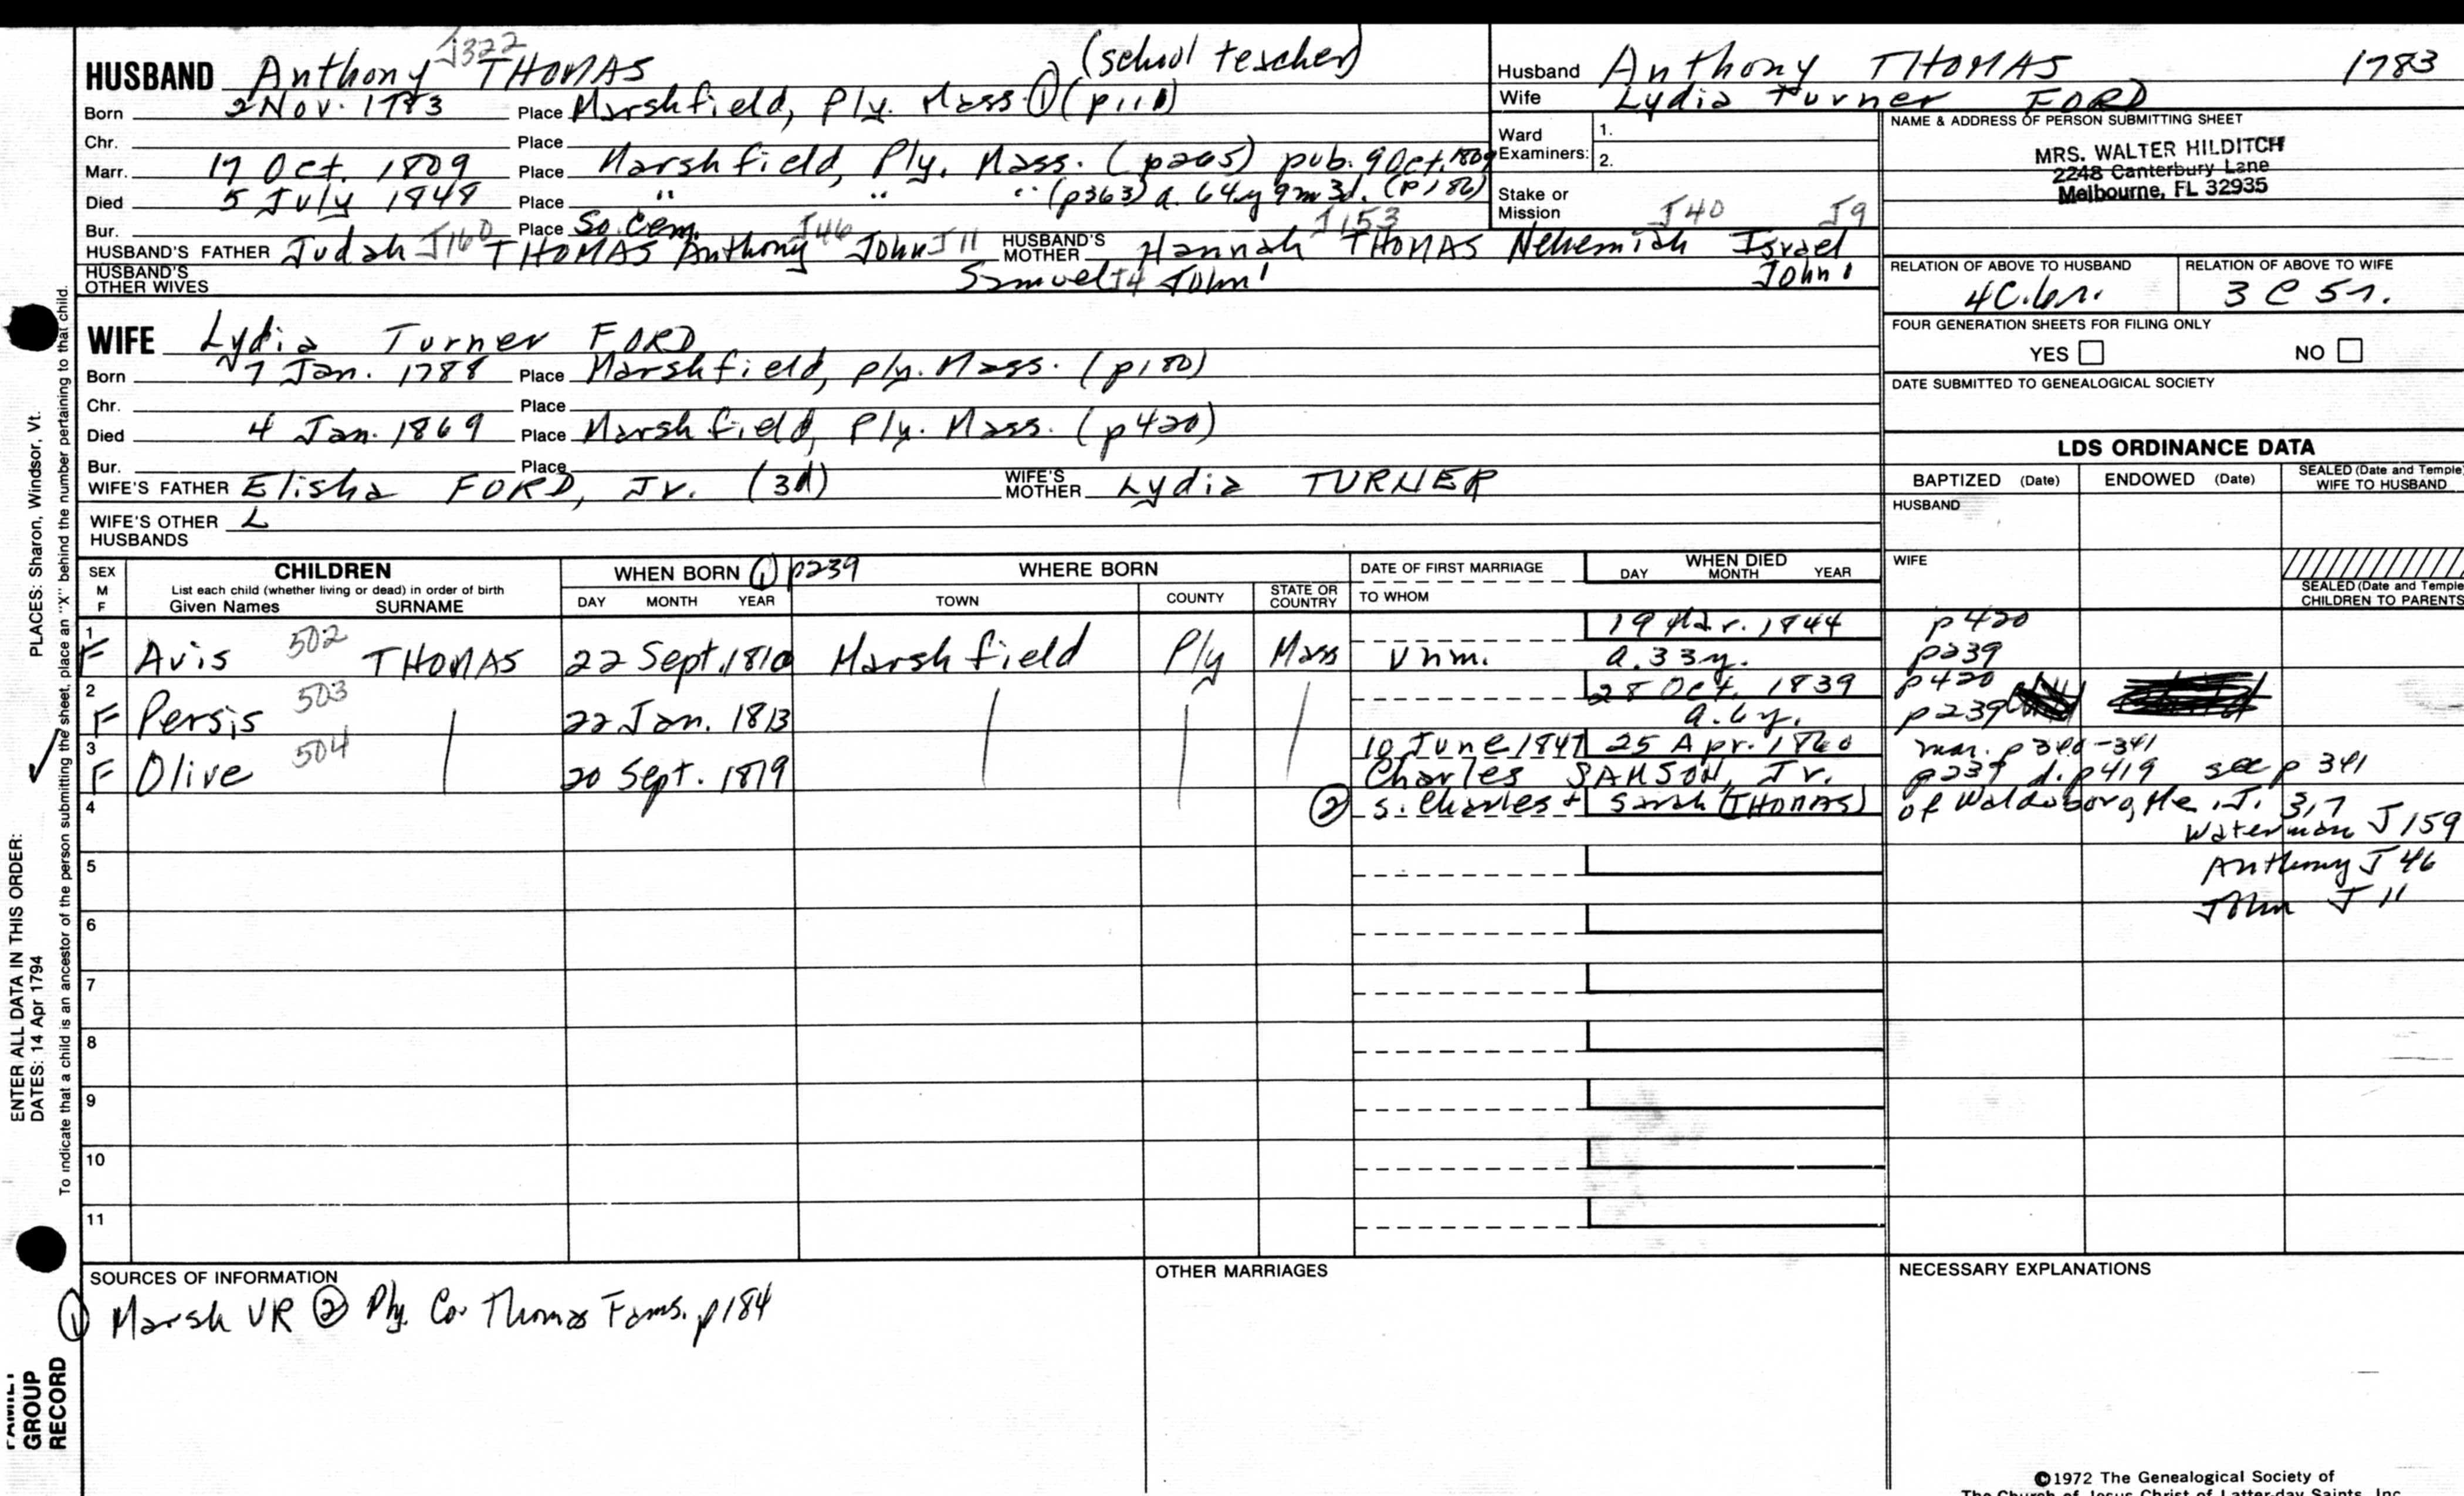 J322
(school teacher)
HUSBAND Anthony THOMAS
Born 2 Nov. 1783 Place Marshfield, Ply. Mass. ① (p111)
Chr. Place
Marr. 17 Oct. 1809 Place Marshfield, Ply. Mass. (p265) pub. 9 Oct. 1809
Died 5 July 1848 Place " " " (p363) a. 64y 9m 3d. (p186)
Bur. Place So. Cem.
HUSBAND'S FATHER Judah J160 THOMAS Anthony J46 John J11 HUSBAND'S MOTHER Hannah J153 THOMAS Nehemiah J40 Israel J9
HUSBAND'S OTHER WIVES Samuel J4 John¹ John¹
WIFE Lydia Turner FORD
Born 7 Jan. 1788 Place Marshfield, Ply. Mass. (p180)
Chr. Place
Died 4 Jan. 1869 Place Marshfield, Ply. Mass. (p420)
Bur. Place
WIFE'S FATHER Elisha FORD, Jr. (3d) WIFE'S MOTHER Lydia TURNER
WIFE'S OTHER HUSBANDS
Husband Anthony THOMAS 1783
Wife Lydia Turner FORD
Ward Examiners: 1.
2.
Stake or Mission
NAME & ADDRESS OF PERSON SUBMITTING SHEET
MRS. WALTER HILDITCH
2248 Canterbury Lane
Melbourne, FL 32935
RELATION OF ABOVE TO HUSBAND RELATION OF ABOVE TO WIFE
4C.6r. 3 C 5r.
FOUR GENERATION SHEETS FOR FILING ONLY
YES NO
DATE SUBMITTED TO GENEALOGICAL SOCIETY
LDS ORDINANCE DATA
BAPTIZED (Date) ENDOWED (Date) SEALED (Date and Temple) WIFE TO HUSBAND
HUSBAND
WIFE
SEALED (Date and Temple) CHILDREN TO PARENTS
SEX M F CHILDREN WHEN BORN ① p239 WHERE BORN DATE OF FIRST MARRIAGE WHEN DIED
List each child (whether living or dead) in order of birth
Given Names SURNAME DAY MONTH YEAR TOWN COUNTY STATE OR COUNTRY TO WHOM DAY MONTH YEAR
1 19 Mar. 1844 p420
F Avis 502 THOMAS 22 Sept. 1810 Marshfield Ply Mass Unm. a. 33y. p239
2 28 Oct. 1839 p420
F Persis 503 22 Jan. 1813 a. 6y. p239
3 10 June 1847 25 Apr. 1860 mar. p340-341
F Olive 504 20 Sept. 1819 Charles SAMSON, Jr. p239 d. p419 see p 341
4 ② s. Charles + Sarah (THOMAS) of Waldoboro, Me. J. 317
Waterman J159
5 Anthony J46
6 John J11
7
8
9
10
11
SOURCES OF INFORMATION OTHER MARRIAGES NECESSARY EXPLANATIONS
① Marsh VR ② Ply. Co. Thomas Fams. p184
©1972 The Genealogical Society of
The Church of Jesus Christ of Latter-day Saints, Inc.
ENTER ALL DATA IN THIS ORDER:
DATES: 14 Apr 1794 PLACES: Sharon, Windsor, Vt.
To indicate that a child is an ancestor of the person submitting the sheet, place an "X" behind the number pertaining to that child.
FAMILY
GROUP
RECORD